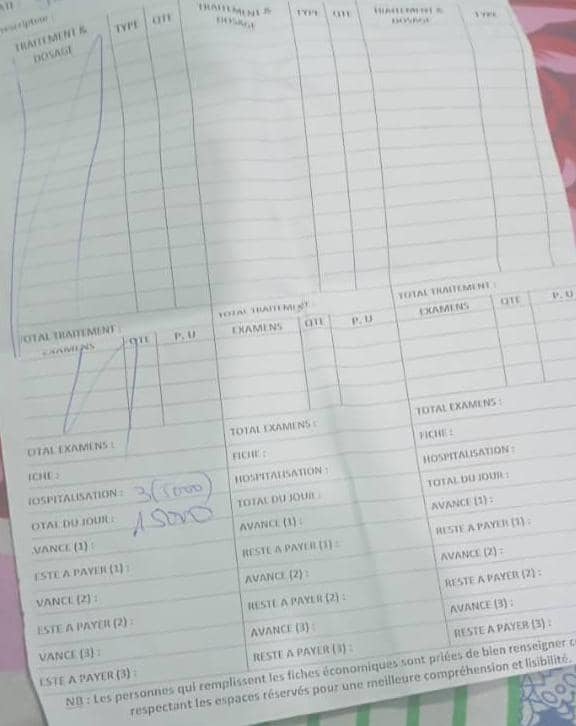 TRAITEMENT & DOSAGE TYPE QTE TRAITEMENT & DOSAGE TYPE QTE TRAITEMENT & DOSAGE TYPE
OTAL TRAITEMENT : TOTAL TRAITEMENT : TOTAL TRAITEMENT :
EXAMENS QTE P. U EXAMENS QTE P. U EXAMENS QTE P. U
OTAL EXAMENS : TOTAL EXAMENS : TOTAL EXAMENS :
ICHE : FICHE : FICHE :
IOSPITALISATION : 3(5000) HOSPITALISATION : HOSPITALISATION :
OTAL DU JOUR : 15000 TOTAL DU JOUR : TOTAL DU JOUR :
VANCE (1) : AVANCE (1) : AVANCE (1) :
ESTE A PAYER (1) : RESTE A PAYER (1) : RESTE A PAYER (1) :
VANCE (2) : AVANCE (2) : AVANCE (2) :
ESTE A PAYER (2) : RESTE A PAYER (2) : RESTE A PAYER (2) :
VANCE (3) : AVANCE (3) : AVANCE (3) :
ESTE A PAYER (3) : RESTE A PAYER (3) : RESTE A PAYER (3) :
NB : Les personnes qui remplissent les fiches économiques sont priées de bien renseigner c
respectant les espaces réservés pour une meilleure compréhension et lisibilité.